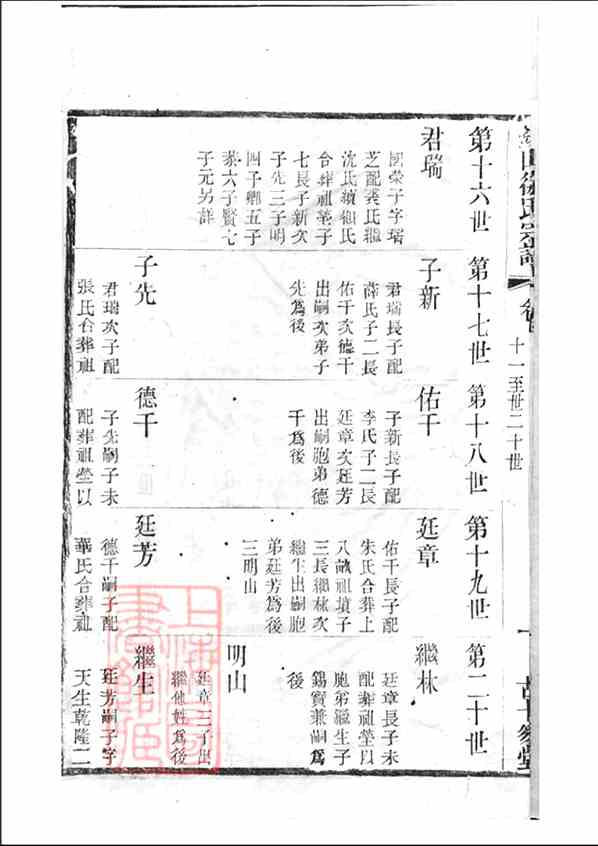 徐氏宗譜
十一至世二十世
第十六世
第十七世
第十八世
第十九世
第二十世
君瑞
國榮子字瑞
芝配裘氏繼
沈氏續顧氏
合葬祖塋子
七長子新次
子先三子明
四子卿五子
六子賢七
子元另詳
子新
君瑞長子配
薛氏子二長
佑千次德千
出嗣次弟子
先為後
佑千
子新長子配
李氏子二長
廷章次廷芳
出嗣胞弟德
千為後
廷章
佑千長子配
朱氏合葬上
八畝祖墳子
三長繼林次
繼生出嗣胞
弟廷芳為後
三明山
繼林
廷章長子未
配葬祖塋以
胞弟繼生子
錫寶兼嗣為
後
明山
廷章三子出
繼他姓為後
子先
君瑞次子配
張氏合葬祖
德千
子先嗣子未
配葬祖塋以
廷芳
德千嗣子配
華氏合葬祖
繼生
廷芳嗣子字
天生乾隆二
上海圖書館藏